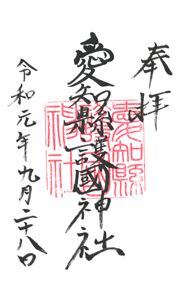 奉拝
愛知縣護國神社
令和元年九月二十八日